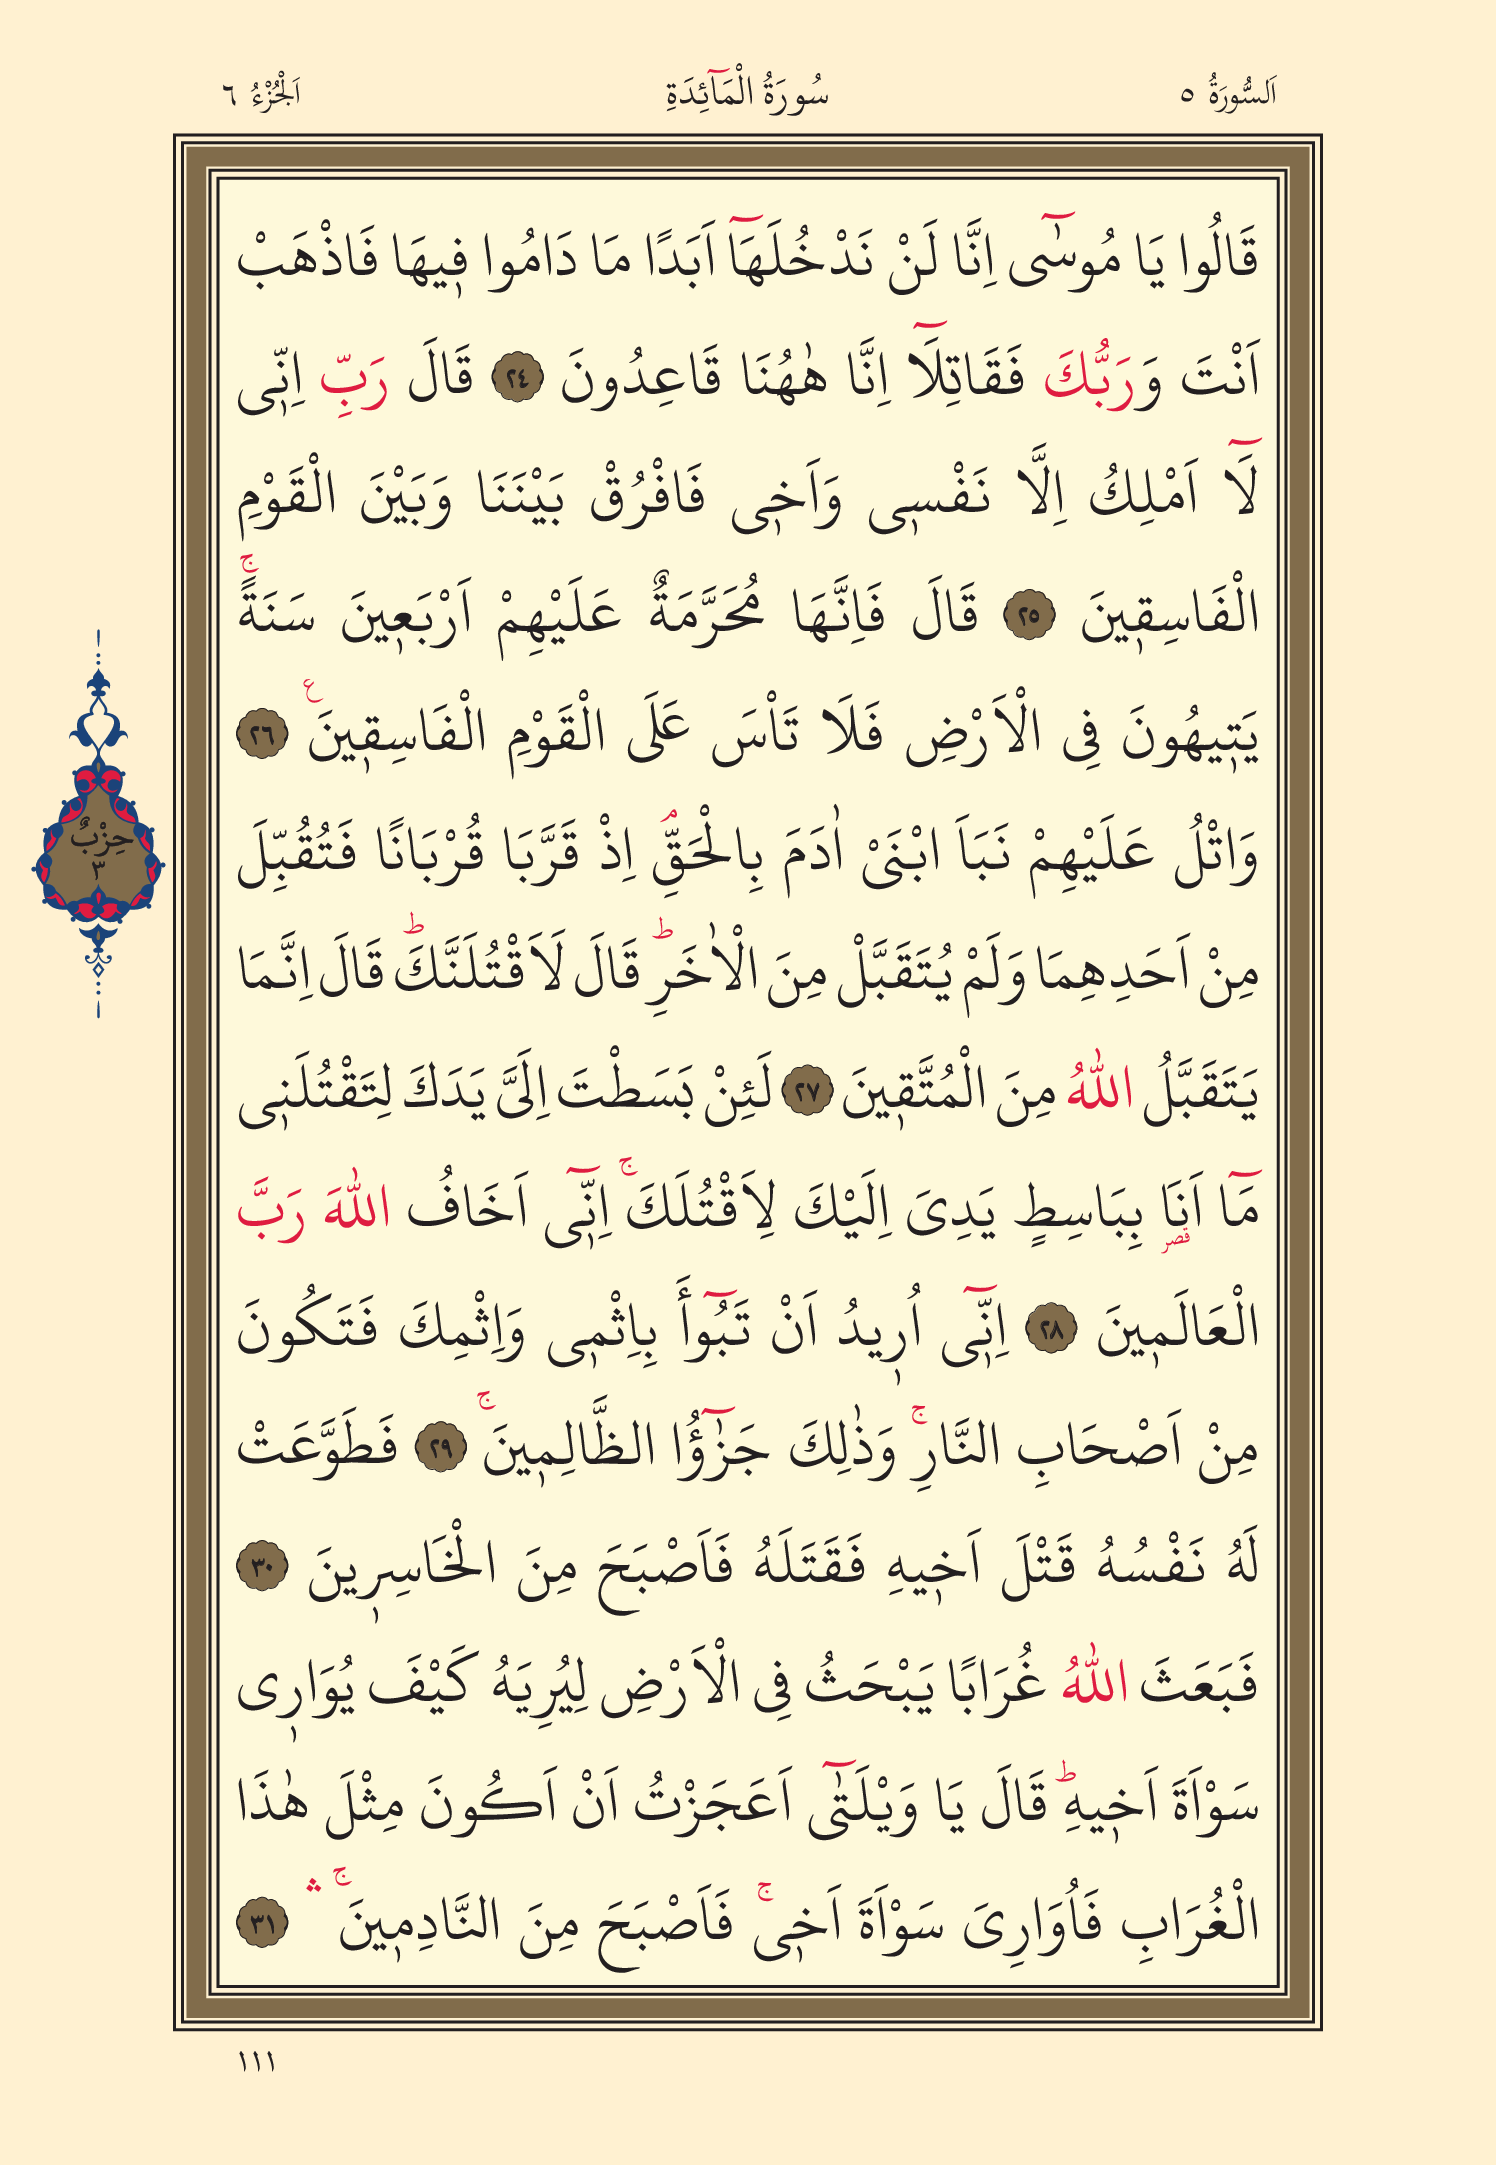 اَلسُّورَةُ ٥ سُورَةُ الْمَٓائِدَةِ اَلْجُزْءُ ٦
قَالُوا يَا مُوسٰٓى اِنَّا لَنْ نَدْخُلَهَٓا اَبَدًا مَا دَامُوا ف۪يهَا فَاذْهَبْ
اَنْتَ وَرَبُّكَ فَقَاتِلَٓا اِنَّا هٰهُنَا قَاعِدُونَ ٢٤ قَالَ رَبِّ اِنّ۪ى
لَٓا اَمْلِكُ اِلَّا نَفْس۪ى وَاَخ۪ى فَافْرُقْ بَيْنَنَا وَبَيْنَ الْقَوْمِ
الْفَاسِق۪ينَ ٢٥ قَالَ فَاِنَّهَا مُحَرَّمَةٌ عَلَيْهِمْ اَرْبَع۪ينَ سَنَةًۚ
يَت۪يهُونَ فِى الْاَرْضِ فَلَا تَاْسَ عَلَى الْقَوْمِ الْفَاسِق۪ينَ ع ٢٦
وَاتْلُ عَلَيْهِمْ نَبَاَ ابْنَىْ اٰدَمَ بِالْحَقِّۢ اِذْ قَرَّبَا قُرْبَانًا فَتُقُبِّلَ
مِنْ اَحَدِهِمَا وَلَمْ يُتَقَبَّلْ مِنَ الْاٰخَرِۜ قَالَ لَاَقْتُلَنَّكَۜ قَالَ اِنَّمَا
يَتَقَبَّلُ اللّٰهُ مِنَ الْمُتَّق۪ينَ ٢٧ لَئِنْ بَسَطْتَ اِلَىَّ يَدَكَ لِتَقْتُلَن۪ى
مَٓا اَنَا۬ قصر بِبَاسِطٍ يَدِىَ اِلَيْكَ لِاَقْتُلَكَۚ اِنّ۪ٓى اَخَافُ اللّٰهَ رَبَّ
الْعَالَم۪ينَ ٢٨ اِنّ۪ٓى اُر۪يدُ اَنْ تَبُٓوأَ بِاِثْم۪ى وَاِثْمِكَ فَتَكُونَ
مِنْ اَصْحَابِ النَّارِۚ وَذٰلِكَ جَزٰٓؤُا الظَّالِم۪ينَۚ ٢٩ فَطَوَّعَتْ
لَهُ نَفْسُهُ قَتْلَ اَخ۪يهِ فَقَتَلَهُ فَاَصْبَحَ مِنَ الْخَاسِر۪ينَ ٣٠
فَبَعَثَ اللّٰهُ غُرَابًا يَبْحَثُ فِى الْاَرْضِ لِيُرِيَهُ كَيْفَ يُوَار۪ى
سَوْاَةَ اَخ۪يهِۜ قَالَ يَا وَيْلَتٰٓى اَعَجَزْتُ اَنْ اَكُونَ مِثْلَ هٰذَا
الْغُرَابِ فَاُوَارِىَ سَوْاَةَ اَخ۪ىۚ فَاَصْبَحَ مِنَ النَّادِم۪ينَۚۛ ٣١
حِزْبٌ
٣
١١١